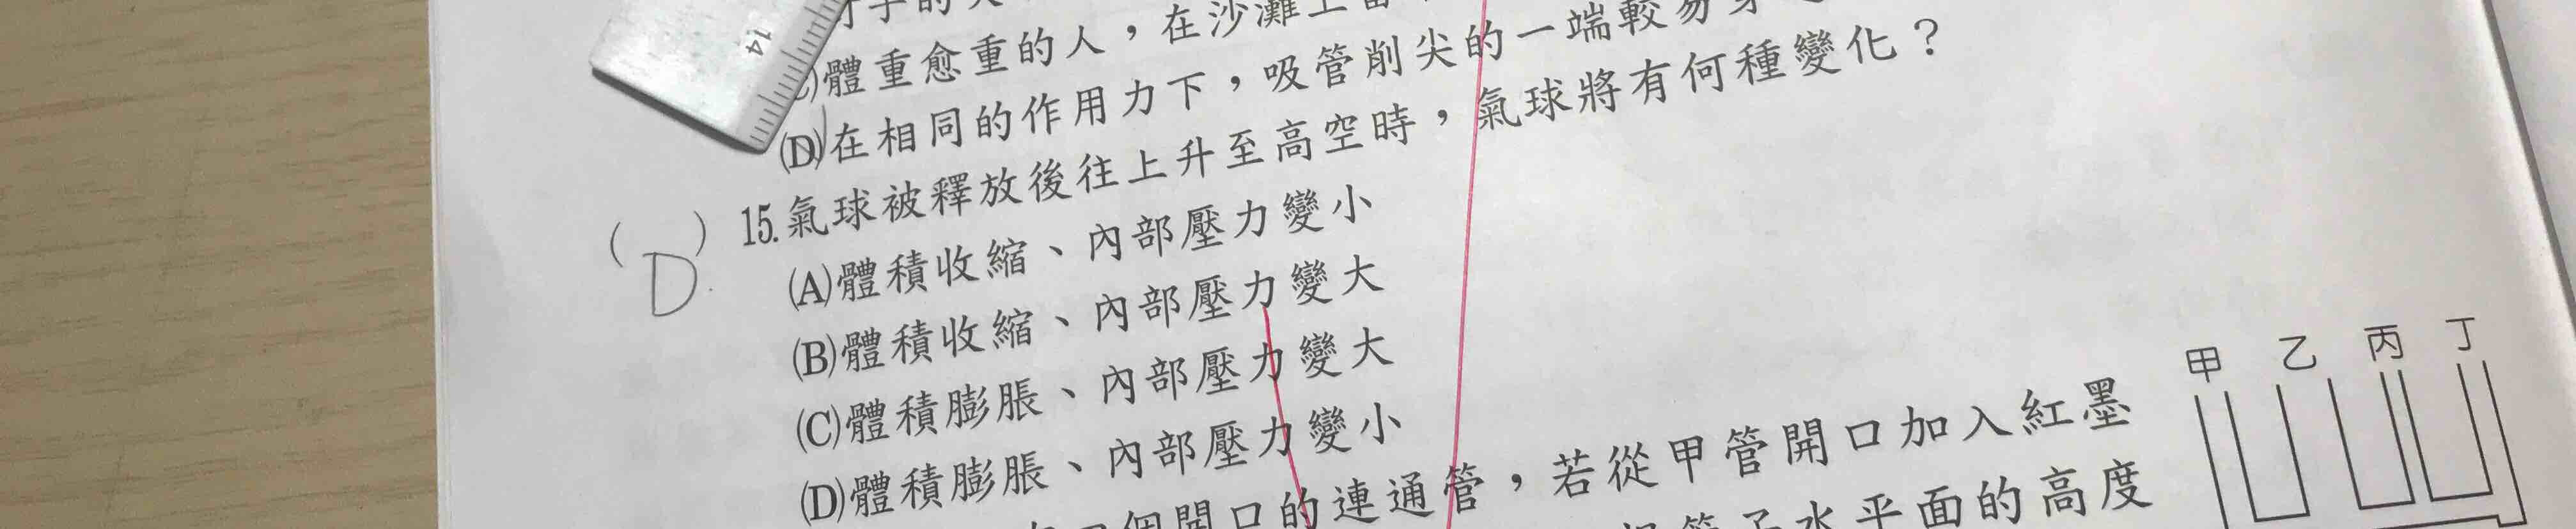 14
體重愈重的人，在沙灘上
(D)在相同的作用力下，吸管削尖的一端較易穿
(D) 15.氣球被釋放後往上升至高空時，氣球將有何種變化？
(A)體積收縮、內部壓力變小
(B)體積收縮、內部壓力變大
(C)體積膨脹、內部壓力變大
(D)體積膨脹、內部壓力變小
個開口的連通管，若從甲管開口加入紅墨
水平面的高度
甲 乙 丙 丁